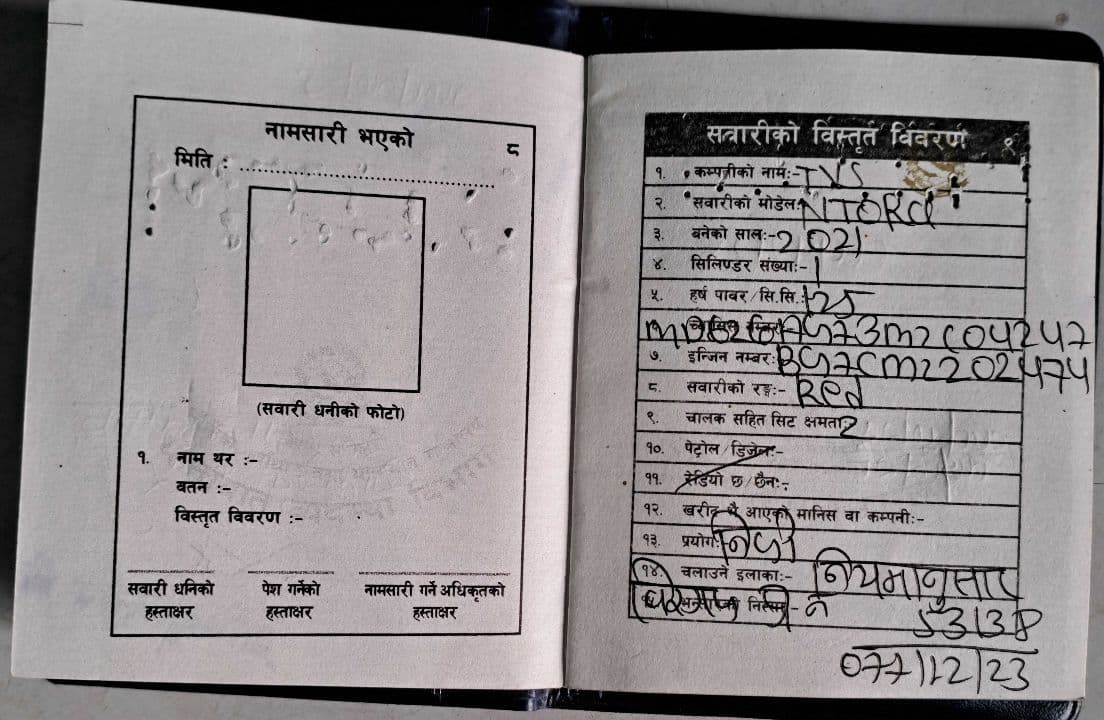 नामसारी भएको
८
मिति :
(सवारी धनीको फोटो)
१. नाम थर :-
वतन :-
विस्तृत विवरण :-
सवारी धनिको हस्ताक्षर
पेश गर्नेको हस्ताक्षर
नामसारी गर्ने अधिकृतको हस्ताक्षर
सवारीको विस्तृत विवरण ९
१. कम्पनीको नाम:- TVS
२. सवारीको मोडेल: NTORQ
३. बनेको साल:- 2021
४. सिलिण्डर संख्या:- 1
५. हर्ष पावर/सि.सि.: 125
७. इन्जिन नम्बर:
८. सवारीको रङ्ग:- Red
९. चालक सहित सिट क्षमता: 2
१०. पेट्रोल/डिजेल:-
११. रेडियो छ/छैन:-
१२. खरीद भै आएको मानिस वा कम्पनी:-
१३. प्रयोग:- निजी
१४. चलाउने इलाका:- नियमानुसार
077/12/23